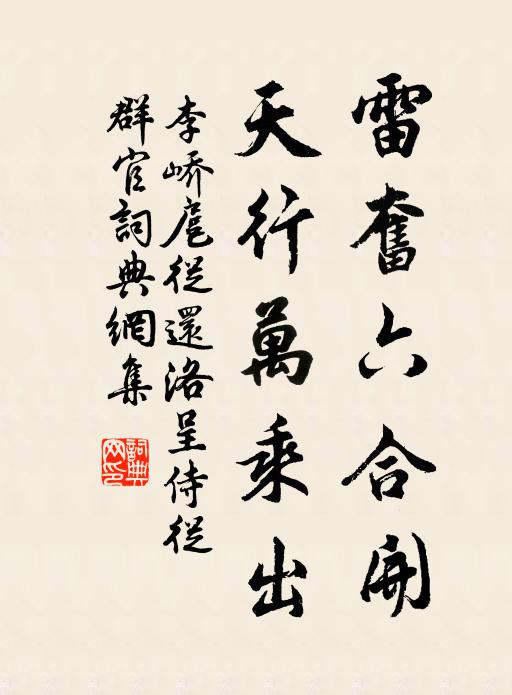 雷奮六合開
天行萬乘出
李嶠扈從還洛呈侍從
群官詞典網集
詞典
网印